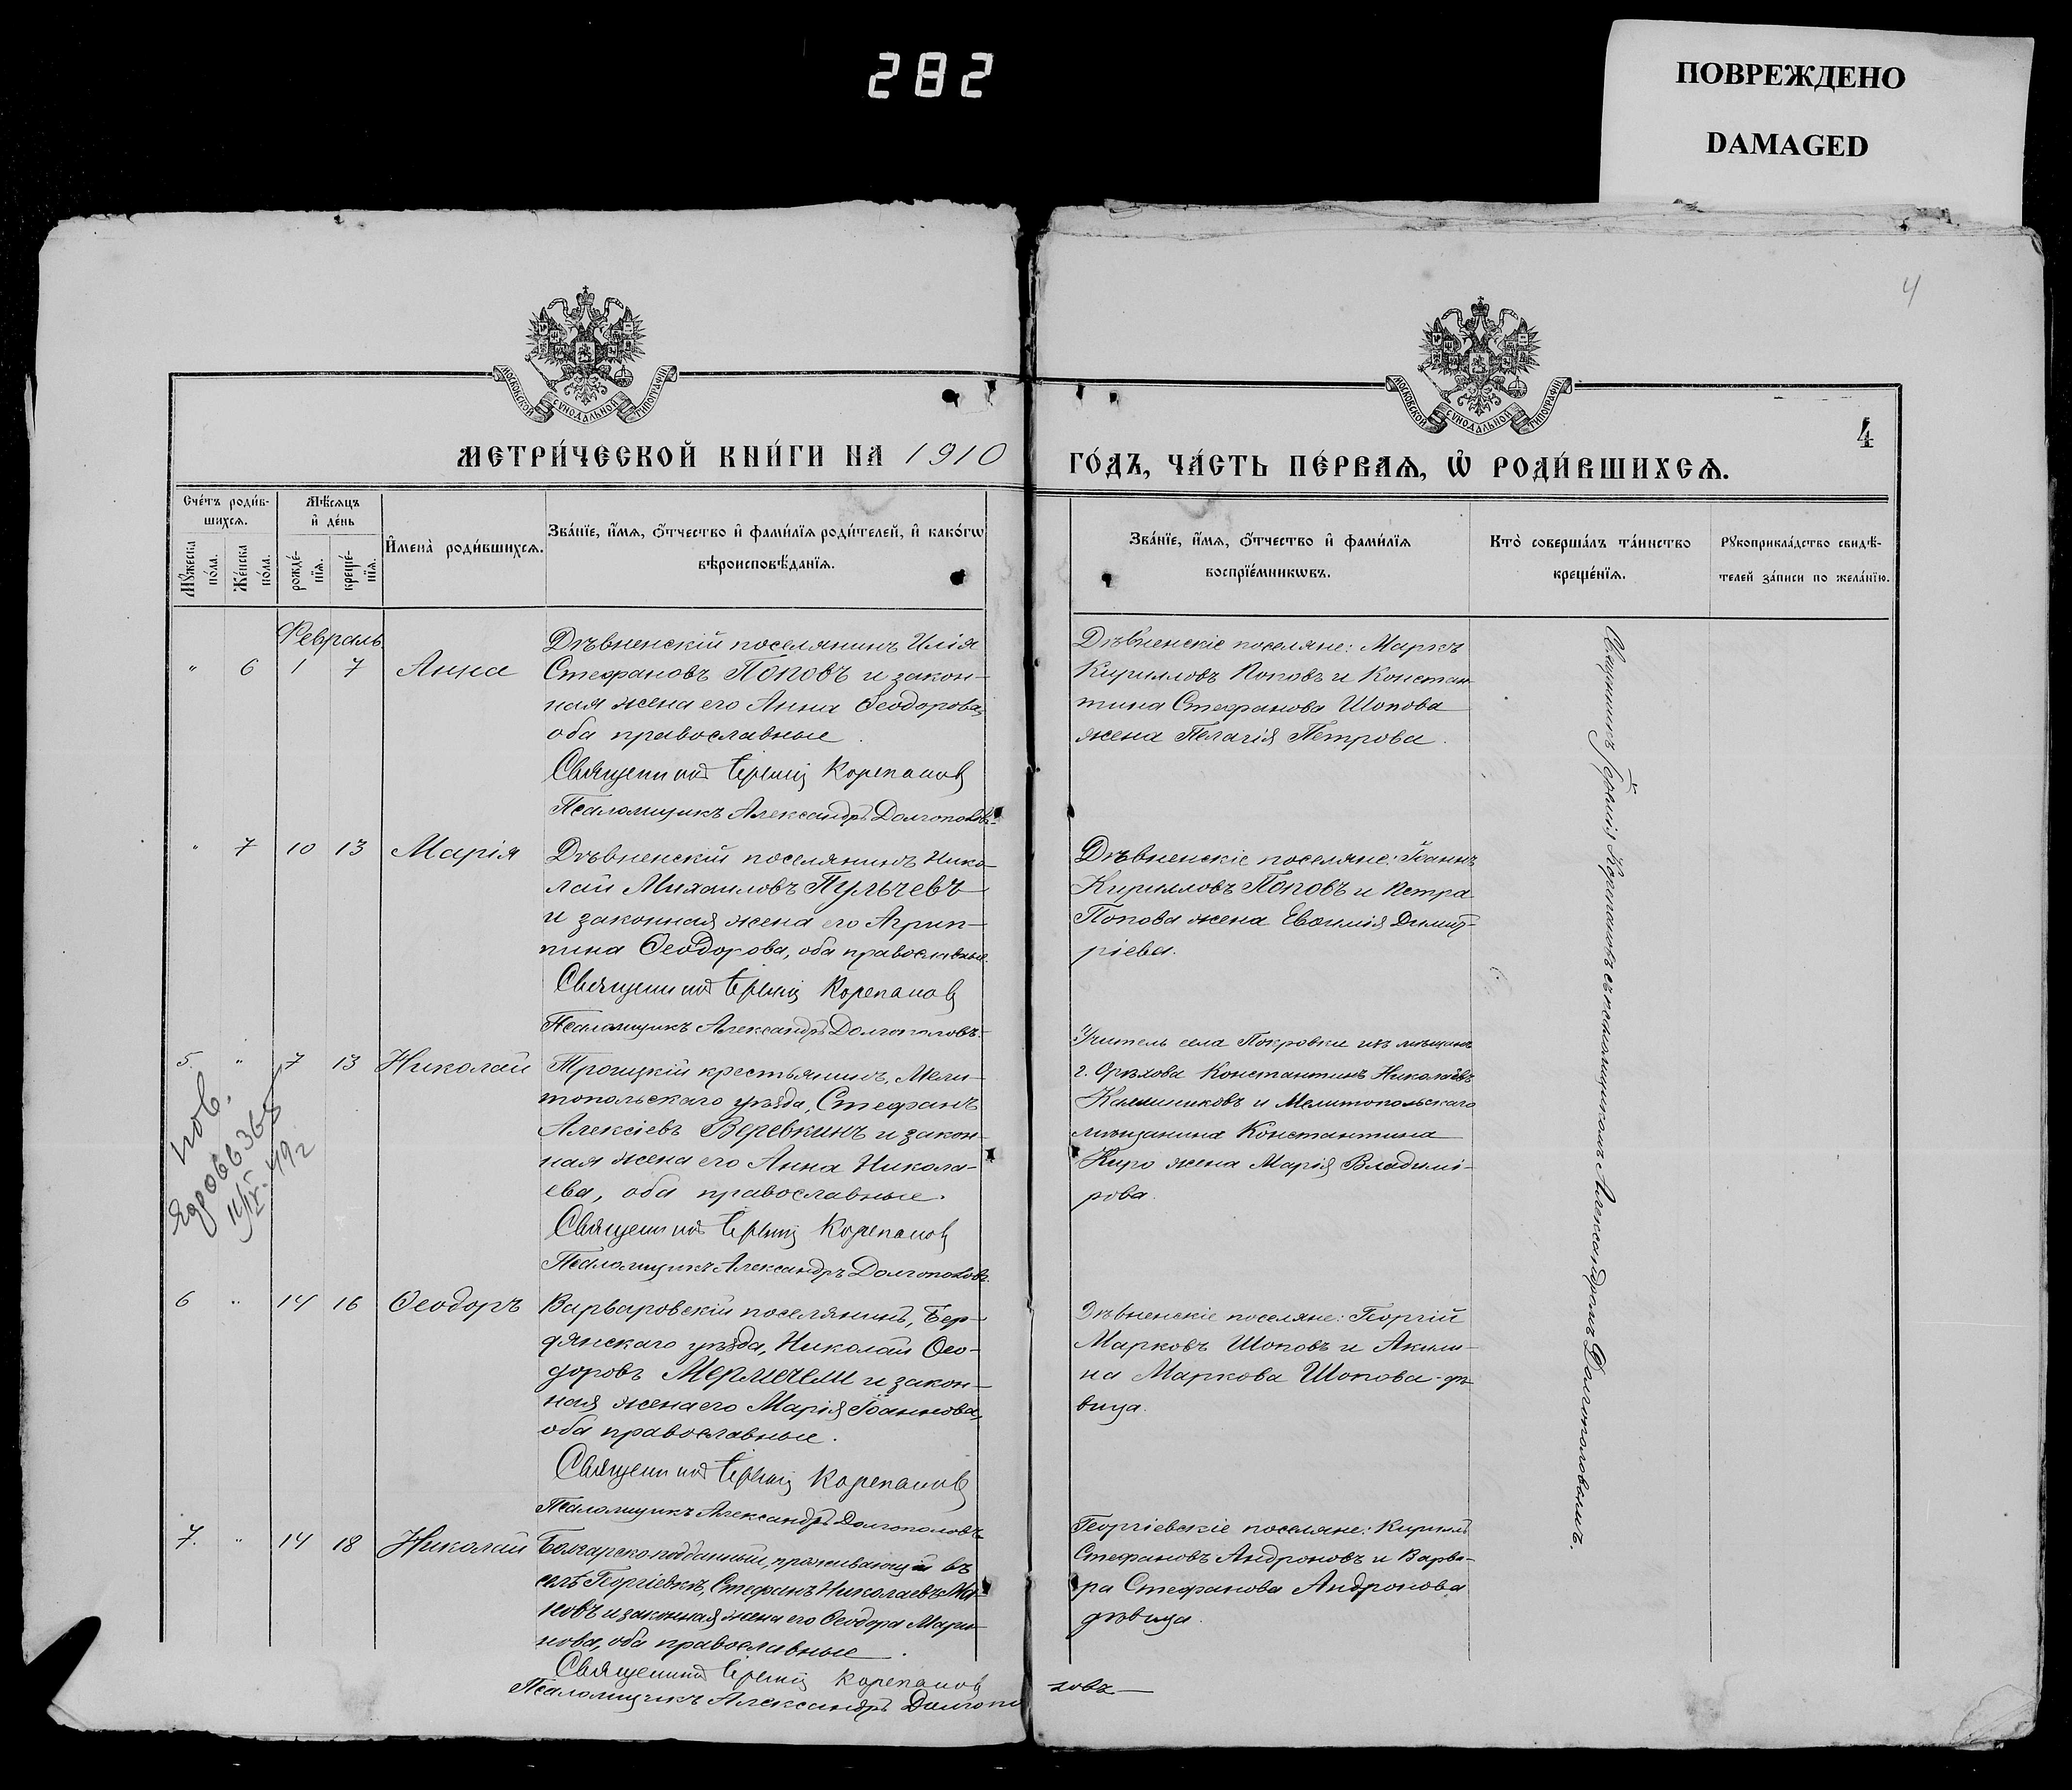 282
ПОВРЕЖДЕНО
DAMAGED
4
МОСКОВСКОЙ СѴНОДАЛЬНОЙ ТИПОГРАФІИ
МОСКОВСКОЙ СѴНОДАЛЬНОЙ ТИПОГРАФІИ
4
МЕТРИ́ЧЕСКОЙ КНИ́ГИ НА 1910
ГО́ДЪ, ЧА́СТЬ ПЕ́РВАѦ, Ѡ҆ РОДИ́ВШИХСѦ.
Сче́тъ роди́в-
шихсѧ.
Мꙋ́жеска по́ла.
Же́нска по́ла.
Мѣ́сѧцъ
и҆ де́нь
рожде́-нїѧ.
креще́-нїѧ.
И҆мена̀ роди́вшихсѧ.
Зва́нїе, и҆́мѧ, ѻ҆́тчество и҆ фами́лїѧ роди́телей, и҆ како́гѡ
вѣроисповѣ́данїѧ.
Зва́нїе, и҆́мѧ, ѻ҆́тчество и҆ фами́лїѧ
воспрїе́мникѡвъ.
Кто̀ соверша́лъ та́инство
креще́нїѧ.
Рꙋкоприкла́дство свидѣ́-
телей за́писи по жела́нїю.
Февраль
" 6 1 7 Анна
Дѣвненскій поселянинъ Илія
Стефановъ Поповъ и закон-
ная жена его Анна Ѳеодорова,
оба православные.
Священникъ Іеремій Корепановъ
Псаломщикъ Александръ Долгополовъ.
Дѣвненскіе поселяне: Маркъ
Кирилловъ Поповъ и Констан-
тина Стефанова Шопова
жена Пелагія Петрова.
" 7 10 13 Марія
Дѣвненскій поселянинъ Нико-
лай Михаиловъ Пульчевъ
и законная жена его Агрип-
пина Ѳеодорова, оба православные.
Священникъ Іеремій Корепановъ
Псаломщикъ Александръ Долгополовъ.
Дѣвненскіе поселяне: Іоаннъ
Кирилловъ Поповъ и Петра
Попова жена Евѳимія Димит-
ріева.
5. " 7 13 Николай
Троицкій крестьянинъ, Мели-
топольскаго уѣзда, Стефанъ
Алексіевъ Веревкинъ и закон-
ная жена его Анна Никола-
ева, оба православные.
Священникъ Іеремій Корепановъ
Псаломщикъ Александръ Долгополовъ.
Учитель села Покровки изъ мѣщанъ
г. Орѣхова Константинъ Николаевъ
и Мелитопольскаго
мѣщанина Константина
Киро жена Марія Владимі-
рова.
пов.
49г
6 " 14 16 Ѳеодоръ
Варваровскій поселянинъ, Бер-
дянскаго уѣзда, Николай Ѳео-
доровъ Мермечели и закон-
ная жена его Марія Іоаннова,
оба православные.
Священникъ Іеремій Корепановъ
Псаломщикъ Александръ Долгополовъ
Дѣвненскіе поселяне: Георгій
Марковъ Шоповъ и Акили-
на Маркова Шопова - дѣ-
вица.
7. " 14 18 Николай
Болгарско-подданный, проживающій въ
селѣ Георгіевкѣ, Стефанъ Николаевъ
и законная жена его Ѳеодора Мари-
нова, оба православные.
Священникъ Іеремій Корепановъ
Псаломщикъ Александръ Долгопо
ловъ
Георгіевскіе поселяне: Кириллъ
Стефановъ Андроновъ и Варва-
ра Стефанова Андронова
дѣвица.
Священникъ Іеремія Корепановъ съ псаломщикомъ Александромъ Долгополовымъ.